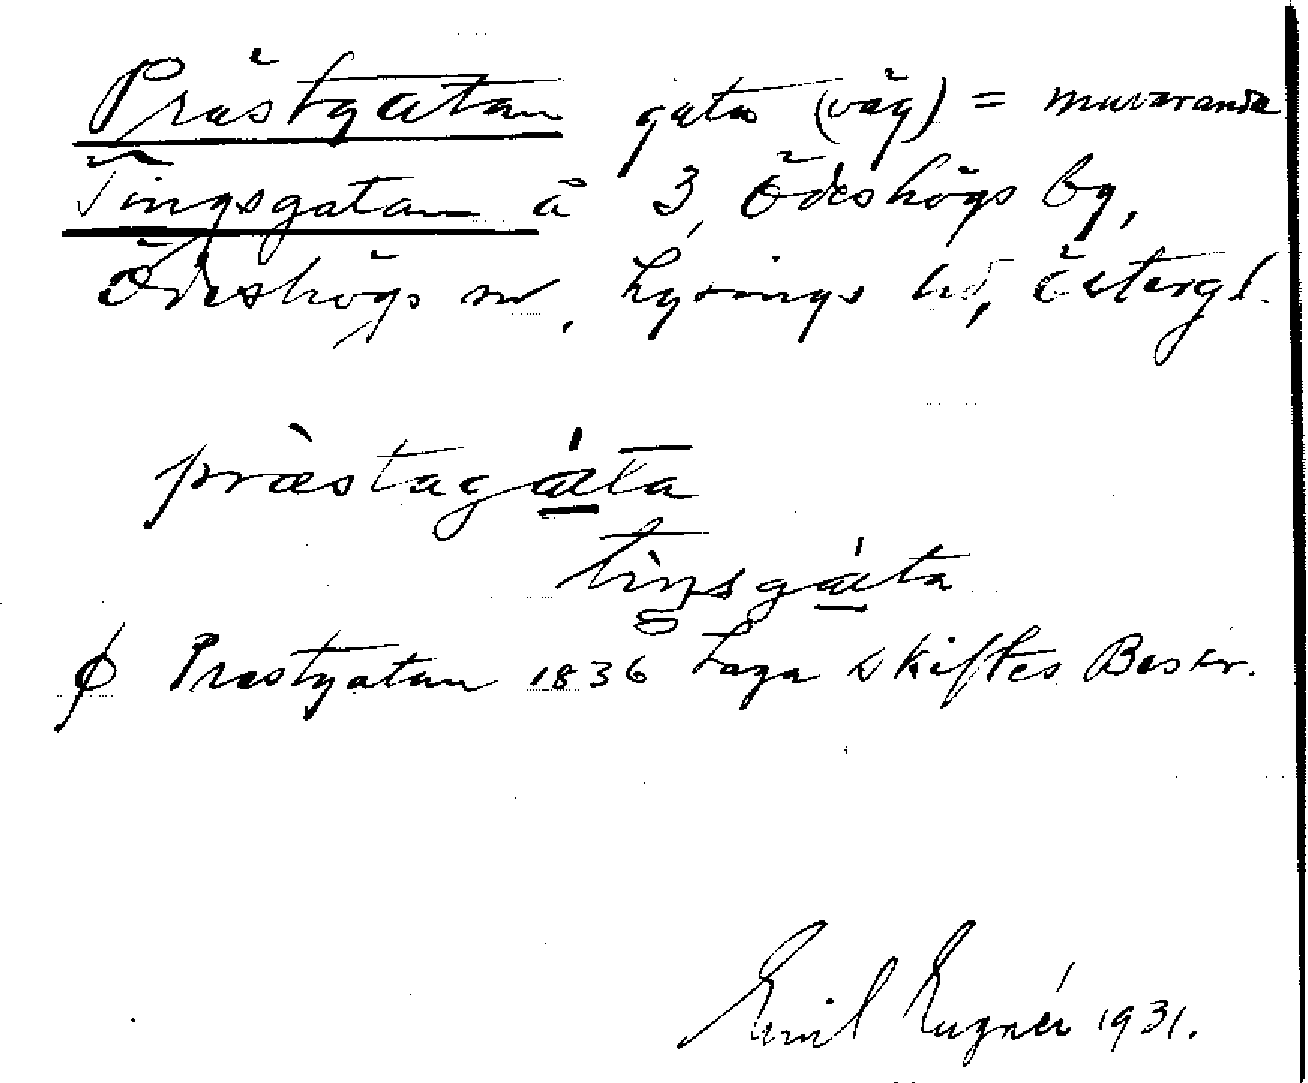 Prästgatan gata (väg) = nuvarande
Tingsgatan å 3, Ödeshögs by,
Ödeshögs sn, Lysings hd, Östergl.
præstagáta
tìŋsgáta
ϕ Prestgatan 1836 Laga skiftes Beskr.
Emil Lugnér 1931.